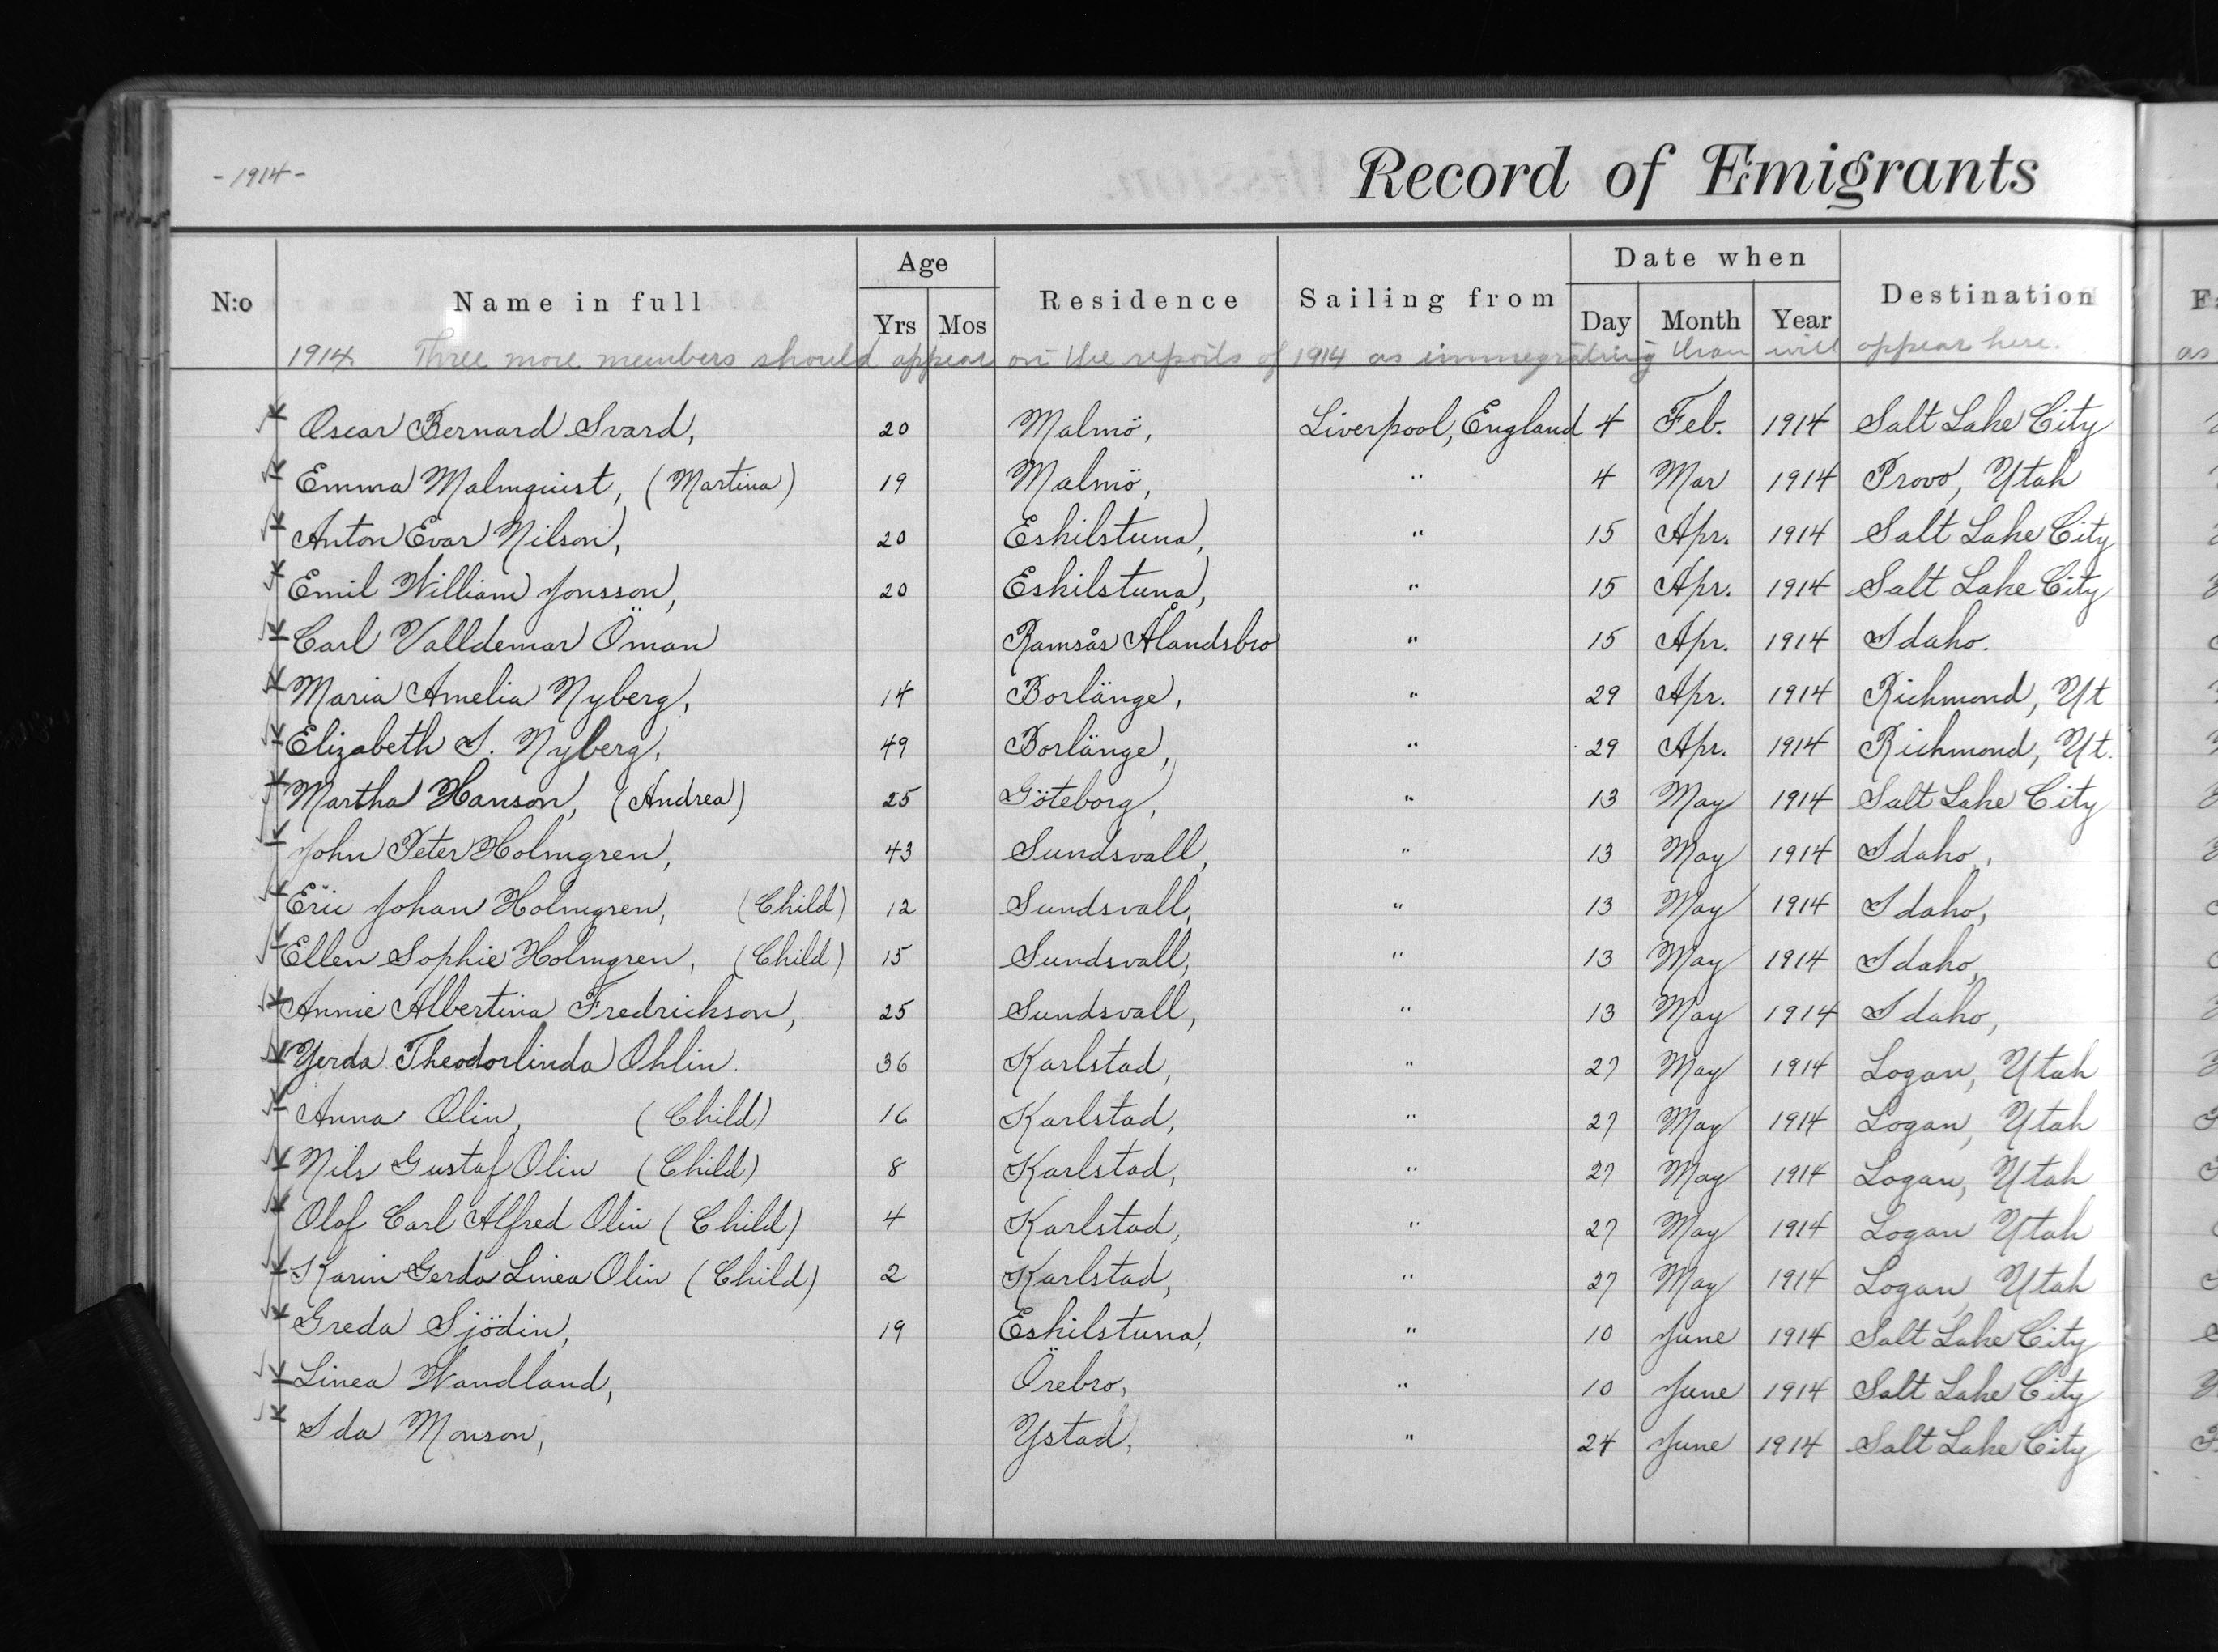 -1914-
Record of Emigrants
N:o Name in full Age Yrs Mos Residence Sailing from Date when Day Month Year Destination
1914. Three more members should appear on the reports of 1914 as immegrating than will appear here. as
Oscar Bernard Svard, 20 Malmö, Liverpool, England 4 Feb. 1914 Salt Lake City
Emma Malmquist, (Martina) 19 Malmö, " 4 Mar 1914 Provo, Utah
Anton Evar Nilson, 20 Eskilstuna, " 15 Apr. 1914 Salt Lake City
Emil William Jonsson, 20 Eskilstuna, " 15 Apr. 1914 Salt Lake City
Carl Valldemar Öman Ramsås Ålandsbro " 15 Apr. 1914 Idaho.
Maria Amelia Nyberg, 14 Borlänge, " 29 Apr. 1914 Richmond, Ut
Elizabeth S. Nyberg, 49 Borlänge, " 29 Apr. 1914 Richmond, Ut.
Martha Hanson, (Andrea) 25 Göteborg, " 13 May 1914 Salt Lake City
John Peter Holmgren, 43 Sundsvall, " 13 May 1914 Idaho,
Eric Johan Holmgren, (Child) 12 Sundsvall, " 13 May 1914 Idaho,
Ellen Sophie Holmgren, (Child) 15 Sundsvall, " 13 May 1914 Idaho,
Annie Albertina Fredrickson, 25 Sundsvall, " 13 May 1914 Idaho,
Yerda Theodorlinda Ohlin. 36 Karlstad, " 27 May 1914 Logan, Utah
Anna Olin, (Child) 16 Karlstad, " 27 May 1914 Logan, Utah
Nils Gustaf Olin (Child) 8 Karlstad, " 27 May 1914 Logan, Utah
Olof Carl Alfred Olin (Child) 4 Karlstad, " 27 May 1914 Logan Utah
Karin Gerda Linea Olin (Child) 2 Karlstad, " 27 May 1914 Logan, Utah
Greda Sjödin, 19 Eskilstuna, " 10 June 1914 Salt Lake City
Linea Wandland, Örebro, " 10 June 1914 Salt Lake City
Ida Monson, Ystad, " 24 June 1914 Salt Lake City